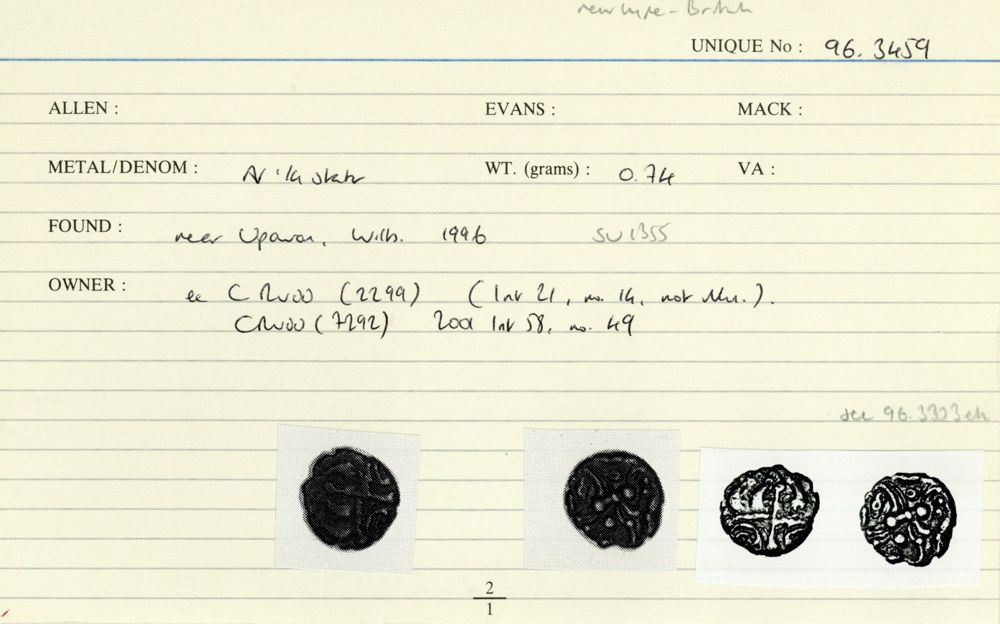 new type - British
UNIQUE No : 96. 3459
ALLEN : EVANS : MACK :
METAL/DENOM : AV 1/4 stater WT. (grams) : 0.74 VA :
FOUND : near Upavon, Wilts. 1996 SU 1355
OWNER : ex C Rudd (2299) (list 21, no. 14, not illus.).
C Rudd (7292) 2001 list 58, no. 49
see 96.3303 etc
2
1